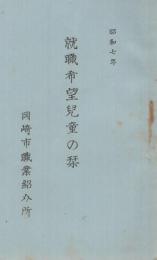 昭和七年
就職希望兒童の栞
岡崎市職業紹介所